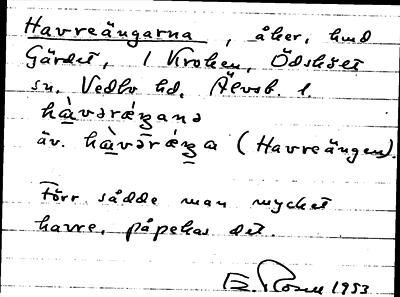 Havreängarna, åker, hmd
Gärdet, 1 Kroken, Ödskölt
sn. Vedbo hd. Älvsb. l.
hàvərǽŋana
äv. hàvərǽŋa (Havreängen).
Förr sådde man mycket
havre, påpekas det.
E. Rosell 1953